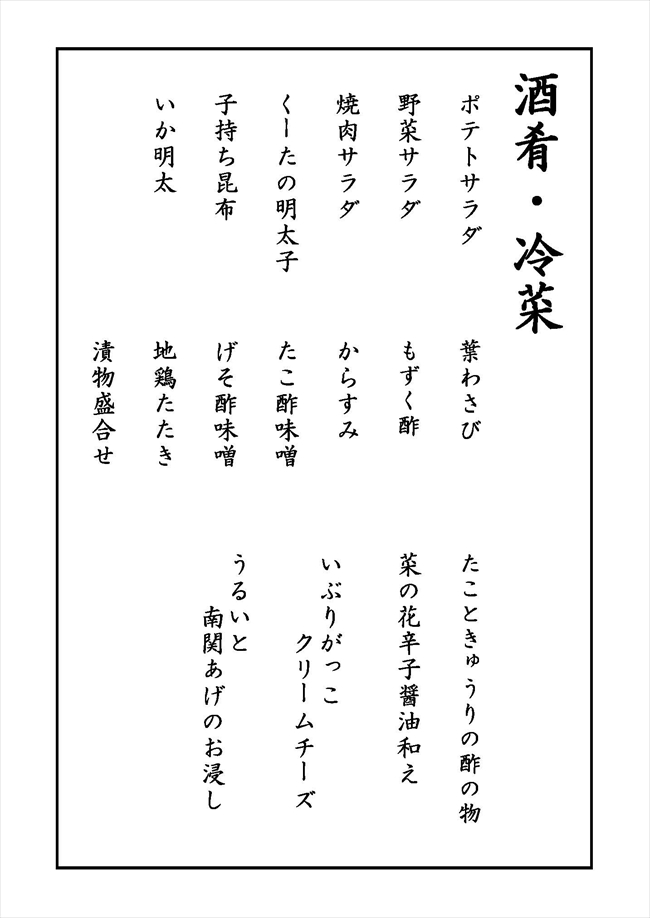 酒肴・冷菜
ポテトサラダ
野菜サラダ
焼肉サラダ
くーたの明太子
子持ち昆布
いか明太
葉わさび
もずく酢
からすみ
たこ酢味噌
げそ酢味噌
地鶏たたき
漬物盛合せ
たこときゅうりの酢の物
菜の花辛子醤油和え
いぶりがっこ
クリームチーズ
うるいと
南関あげのお浸し